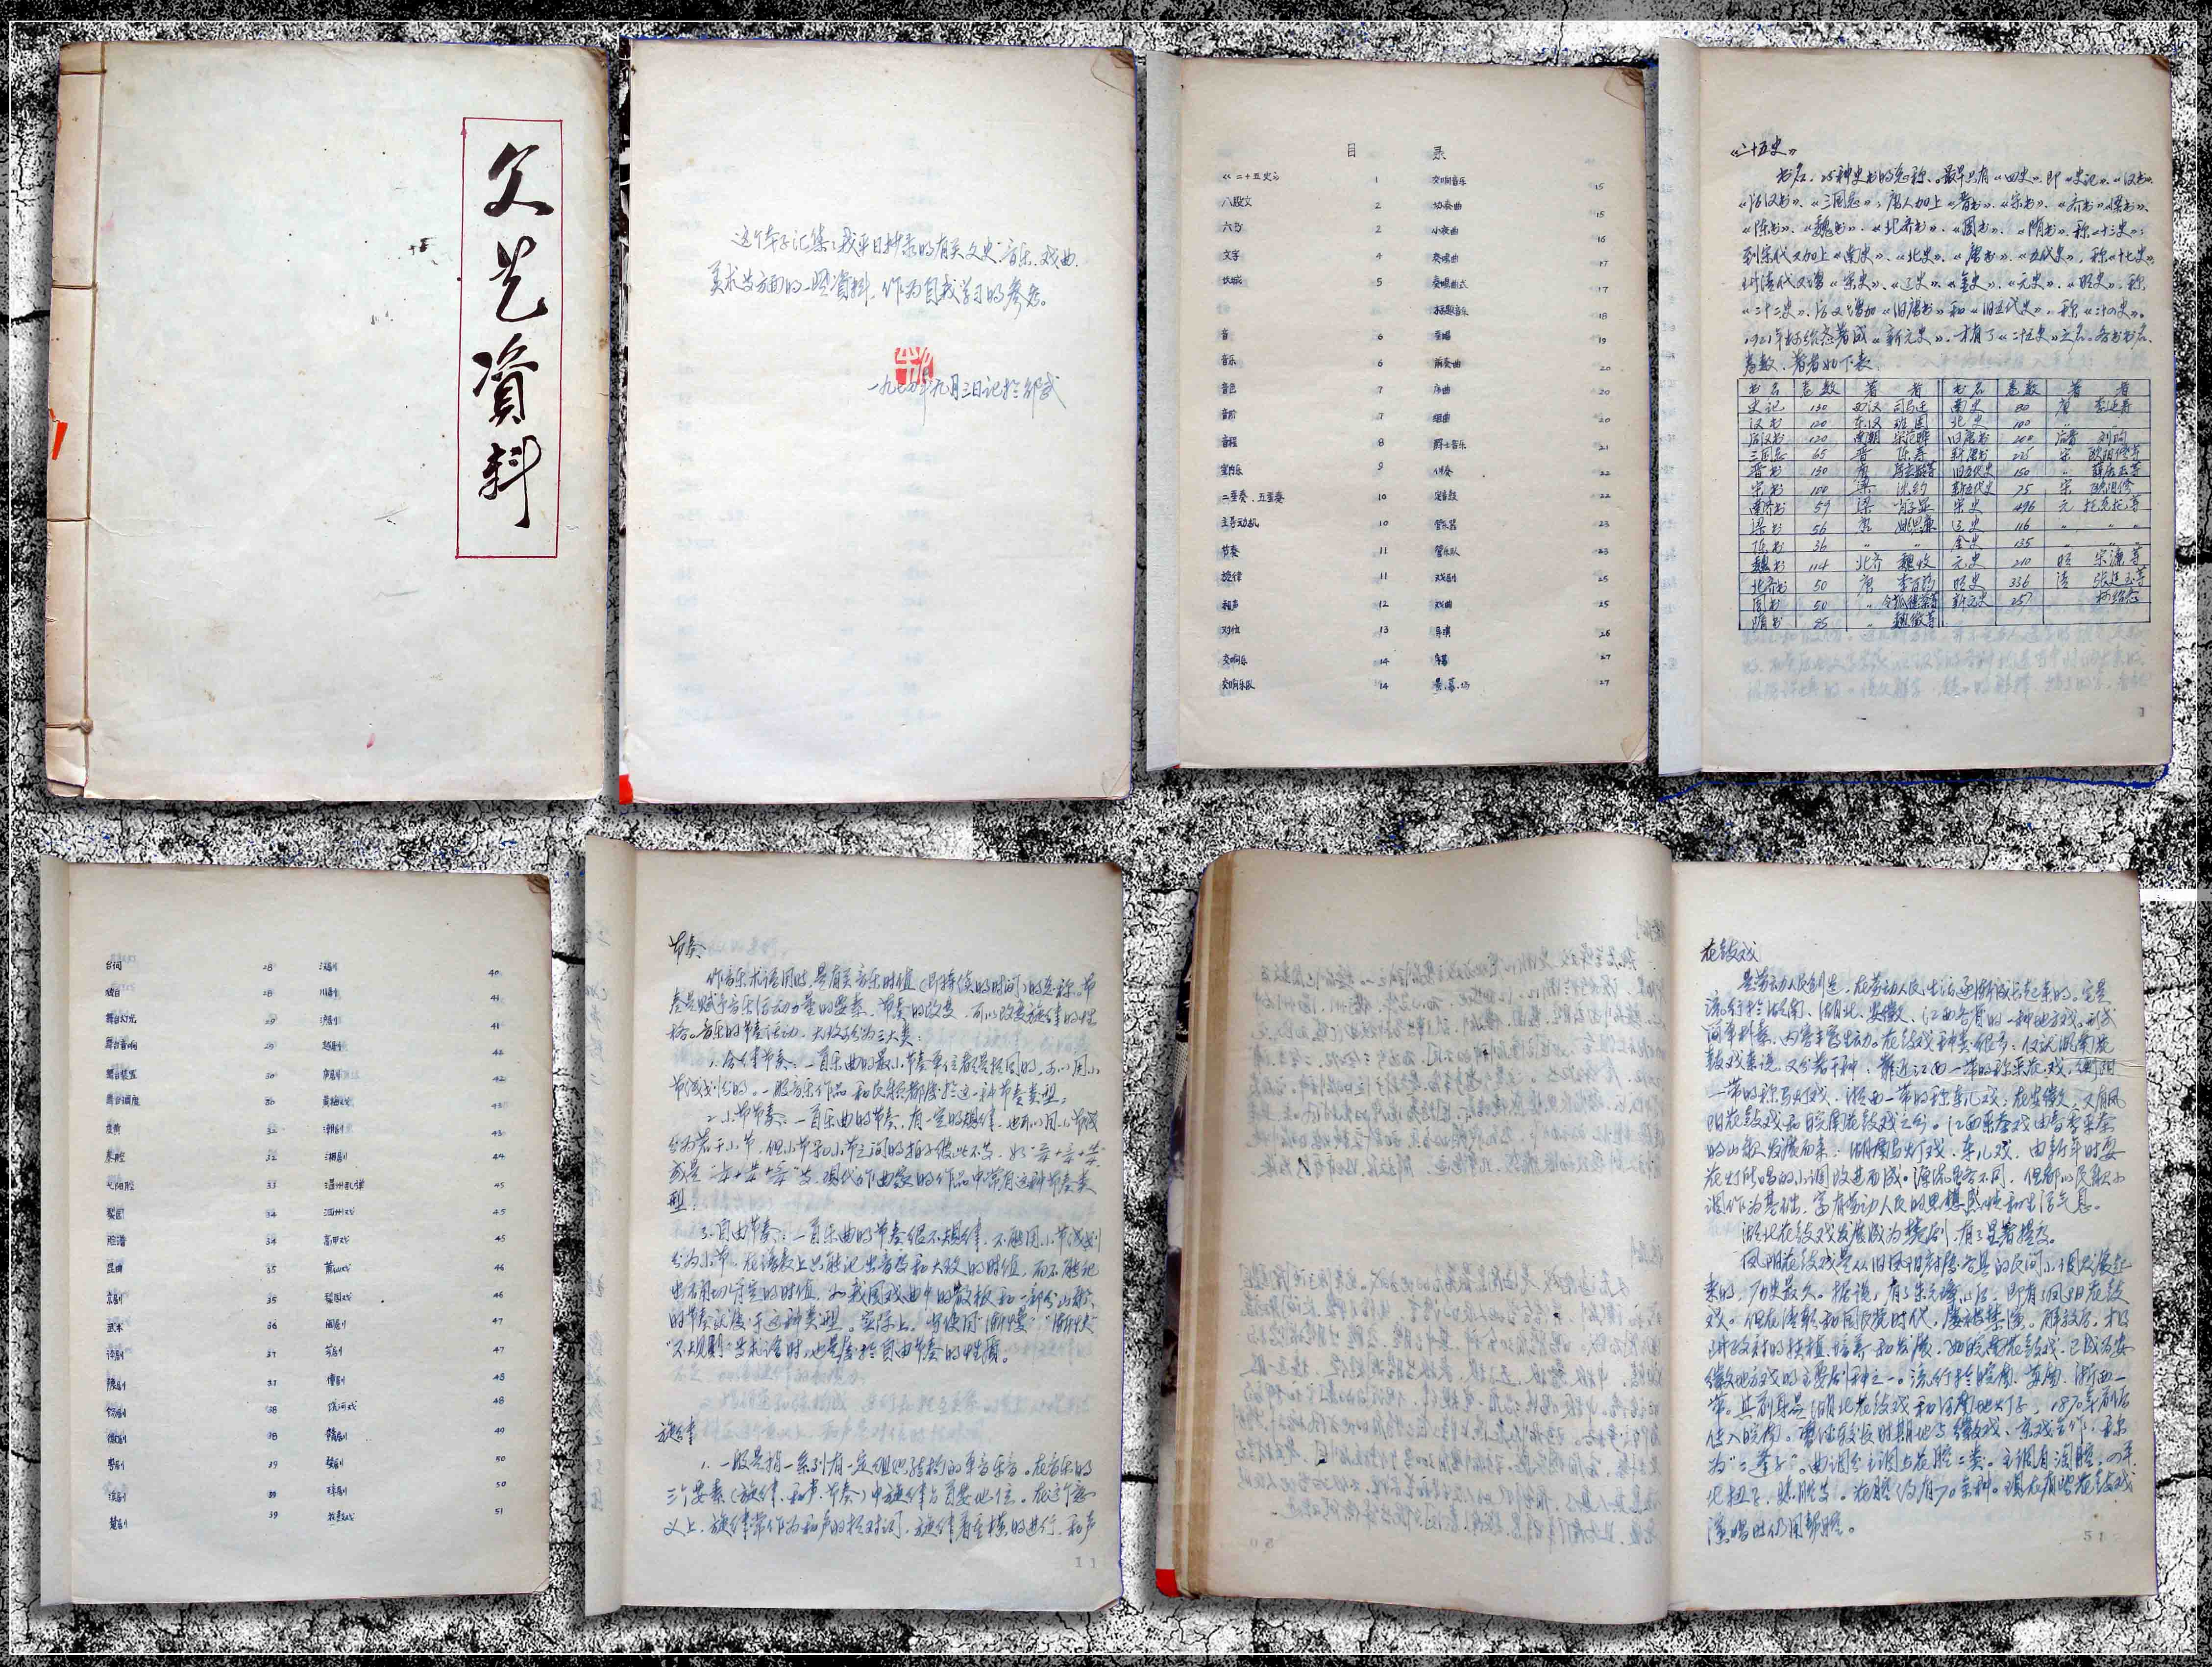 文艺资料
这个本子记集了我平日抄录的有关文史、音乐、戏曲、
美术等方面的一些资料,作为自我学习的参考。
一九七四年九月三日记于邵武
目 录
《二十五史》 1 交响音乐 15
八股文 2 协奏曲 15
六书 2 小夜曲 16
文字 4 奏鸣曲 17
长城 5 奏鸣曲式 17
标题音乐 18
音 6 重唱 19
音乐 6 前奏曲 20
音色 7 序曲 20
音阶 7 组曲 20
音程 8 爵士音乐 21
室内乐 9 伴奏 22
二重奏、五重奏 10 定音鼓 22
主导动机 10 管乐器 23
节奏 11 管乐队 23
旋律 11 戏剧 25
和声 12 戏曲 25
对位 13 导演 26
交响乐 14 序幕 27
交响乐队 14 景、幕、场 27
《二十五史》
书名,25种史书的总称。最早只有《四史》,即《史记》、《汉书》、
《后汉书》、《三国志》;唐人加上《晋书》、《宋书》、《齐书》《梁书》、
《陈书》、《魏书》、《北齐书》、《周书》、《隋书》,称《十三史》;
到宋代又加上《南史》、《北史》、《唐书》、《五代史》,称《十七史》,
到清代又增《宋史》、《辽史》、《金史》、《元史》、《明史》,称
《二十二史》,后又增加《旧唐书》和《旧五代史》,称《二十四史》。
1921年柯绍忞著成《新元史》,才有了《二十五史》之名。各书书名、
卷数、著者如下表:
书名 卷数 著者 书名 卷数 著者
史记 130 西汉 司马迁 南史 80 唐 李延寿
汉书 120 东汉 班固 北史 100 〃 〃
后汉书 120 南朝 宋范晔 旧唐书 200 后晋 刘昫
三国志 65 晋 陈寿 新唐书 225 宋 欧阳修等
晋书 130 唐 房玄龄等 旧五代史 150 〃 薛居正等
宋书 100 梁 沈约 新五代史 75 宋 欧阳修
南齐书 59 梁 肖子显 宋史 496 元 托克托等
梁书 56 唐 姚思廉 辽史 116 〃 〃
陈书 36 〃 〃 金史 135 〃 〃
魏书 114 北齐 魏收 元史 210 明 宋濂等
北齐书 50 唐 李百药 明史 336 清 张廷玉等
周书 50 〃 令狐德棻等 新元史 257 柯绍忞
隋书 85 〃 魏徵等
1
台词 28 汉剧 40
独白 28 川剧 41
舞台灯光 29 沪剧 41
舞台音响 29 越剧 42
舞台装置 30 庐剧 42
舞台调度 30 黄梅戏 43
皮黄 32 潮剧 43
秦腔 32 湘剧 44
弋阳腔 33 温州乱弹 45
梨园 34 泗州戏 45
脸谱 34 高甲戏 45
昆曲 35 莆仙戏 46
京剧 35 梨园戏 46
武术 36 闽剧 47
评剧 37 47
豫剧 37 48
38 48
徽剧 38 赣剧 49
粤剧 39 婺剧 50
39 50
楚剧 39 花鼓戏 51
节奏
作音乐术语用时,是有关音乐时值(即持续的时间)的总称。节
奏是赋予音乐活动力量的要素。节奏的改变,可以改变旋律的性
格。音乐的节奏活动,大致可分为三大类:
1. 合律节奏:一首乐曲的最小节奏单位都是相同的,可以用小
节线划分的。一般音乐作品和民歌都属于这一种节奏类型;
2. 小节节奏:一首乐曲的节奏,有一定的规律,也可以用小节线
分为若干小节,但小节和小节之间的拍子彼此不等,
等,现代作曲家的作品中常有这种节奏类
型;
3. 自由节奏:一首乐曲的节奏很不规律,不能用小节线划
分为小节,在谱表上只能记出音高和大致的时值,而不能记
出有确切肯定的时值,如我国戏曲中的散板和一部分山歌
的节奏就属于这种类型。实际上,当使用“渐慢”“渐快”
“不规则”等术语时,也是属于自由节奏的性质。
旋律
1. 一般是指一系列有一定组织结构的单音乐音。在音乐的
三个要素(旋律、和声、节奏)中旋律占首要地位。在这个意
义上,旋律常作为和声的相对词,旋律着重横的进行,和声
11
花鼓戏
是劳动人民创造,在劳动人民生活逐渐成长起来的。它是
流行于湖南、湖北、安徽、江西各省的一种地方戏。形式
简单朴素,内容丰富生动。花鼓戏种类很多,仅以湖南花
鼓戏来说,又分若干种:靠近江西一带的称采花戏,
一带的称马灯戏,湘西一带的称车儿戏;在安徽,又有凤
阳花鼓戏和皖南花鼓戏之分。江西采茶戏由春季采茶
的山歌发展而来;湖南马灯戏、车儿戏,由新年时耍
花灯所唱的小调改进而成。源流虽各不同,但都以民歌小
调作为基础,富有劳动人民的思想感情和生活气息。
湖北花鼓戏发展成为楚剧,有了显著提高。
凤阳花鼓戏是从旧凤阳府属各县的民间小调发展起
来的,历史最久。据说,有了朱元璋以后,即有了凤阳花鼓
戏。但在清朝和国民党时代,屡被禁演。解放后,
政府的扶植、培养和发展,如皖南花鼓戏,已成为安
徽地方戏的主要剧种之一。流行于皖南、苏南、浙西一
带。其前身是湖北花鼓戏和河南地灯子,1870年前后
传入皖南。曾经较长时期地与徽戏、京戏合作,
为“二蓬子”。曲调分主调与花腔二类。主调有淘腔、四平、
北扭子、悲腔等。花腔约有70余种。现在有些花鼓戏
演唱时仍用帮腔。
51